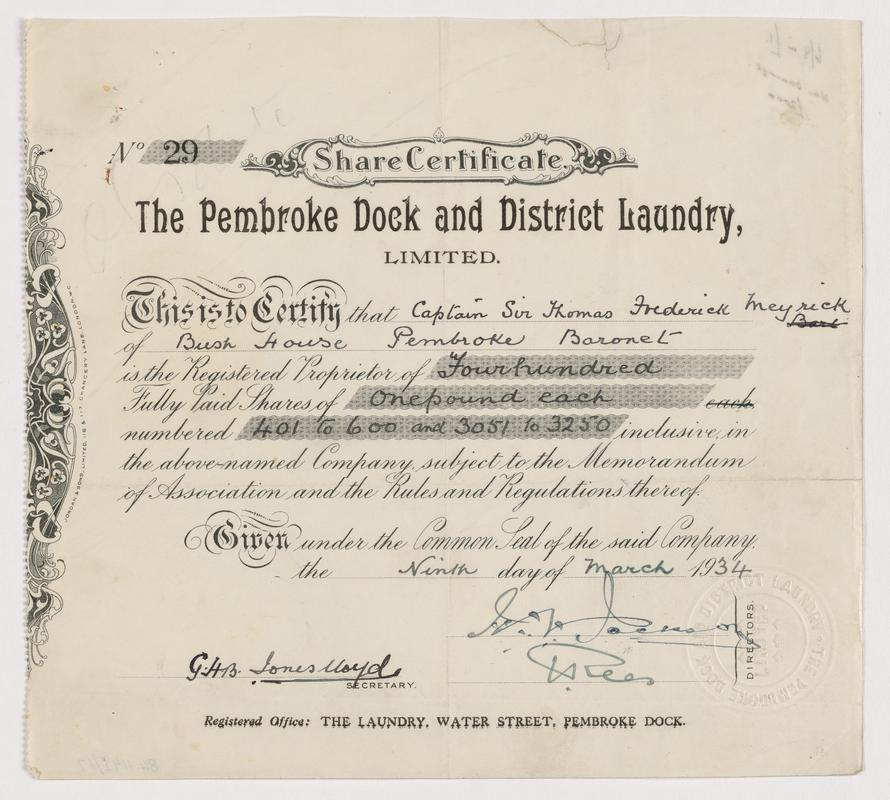 Nº 29
Share Certificate.
The Pembroke Dock and District Laundry,
LIMITED.
This is to Certify that Captain Sir Thomas Frederick Meyrick
Bart
of Bush House Pembroke Baronet
is the Registered Proprietor of Four hundred
Fully Paid Shares of One pound each each
numbered 401 to 600 and 3051 to 3250 inclusive, in
the above-named Company, subject to the Memorandum
of Association and the Rules and Regulations thereof.
Given under the Common Seal of the said Company,
the Ninth day of March 1934
Jackson
Rees
DIRECTORS.
G.H.B. Jones Lloyd
SECRETARY.
Registered Office: THE LAUNDRY, WATER STREET, PEMBROKE DOCK.
JORDAN & SONS, LIMITED, 116 & 117, CHANCERY LANE, LONDON, W.C.
THE PEMBROKE DOCK AND DISTRICT LAUNDRY